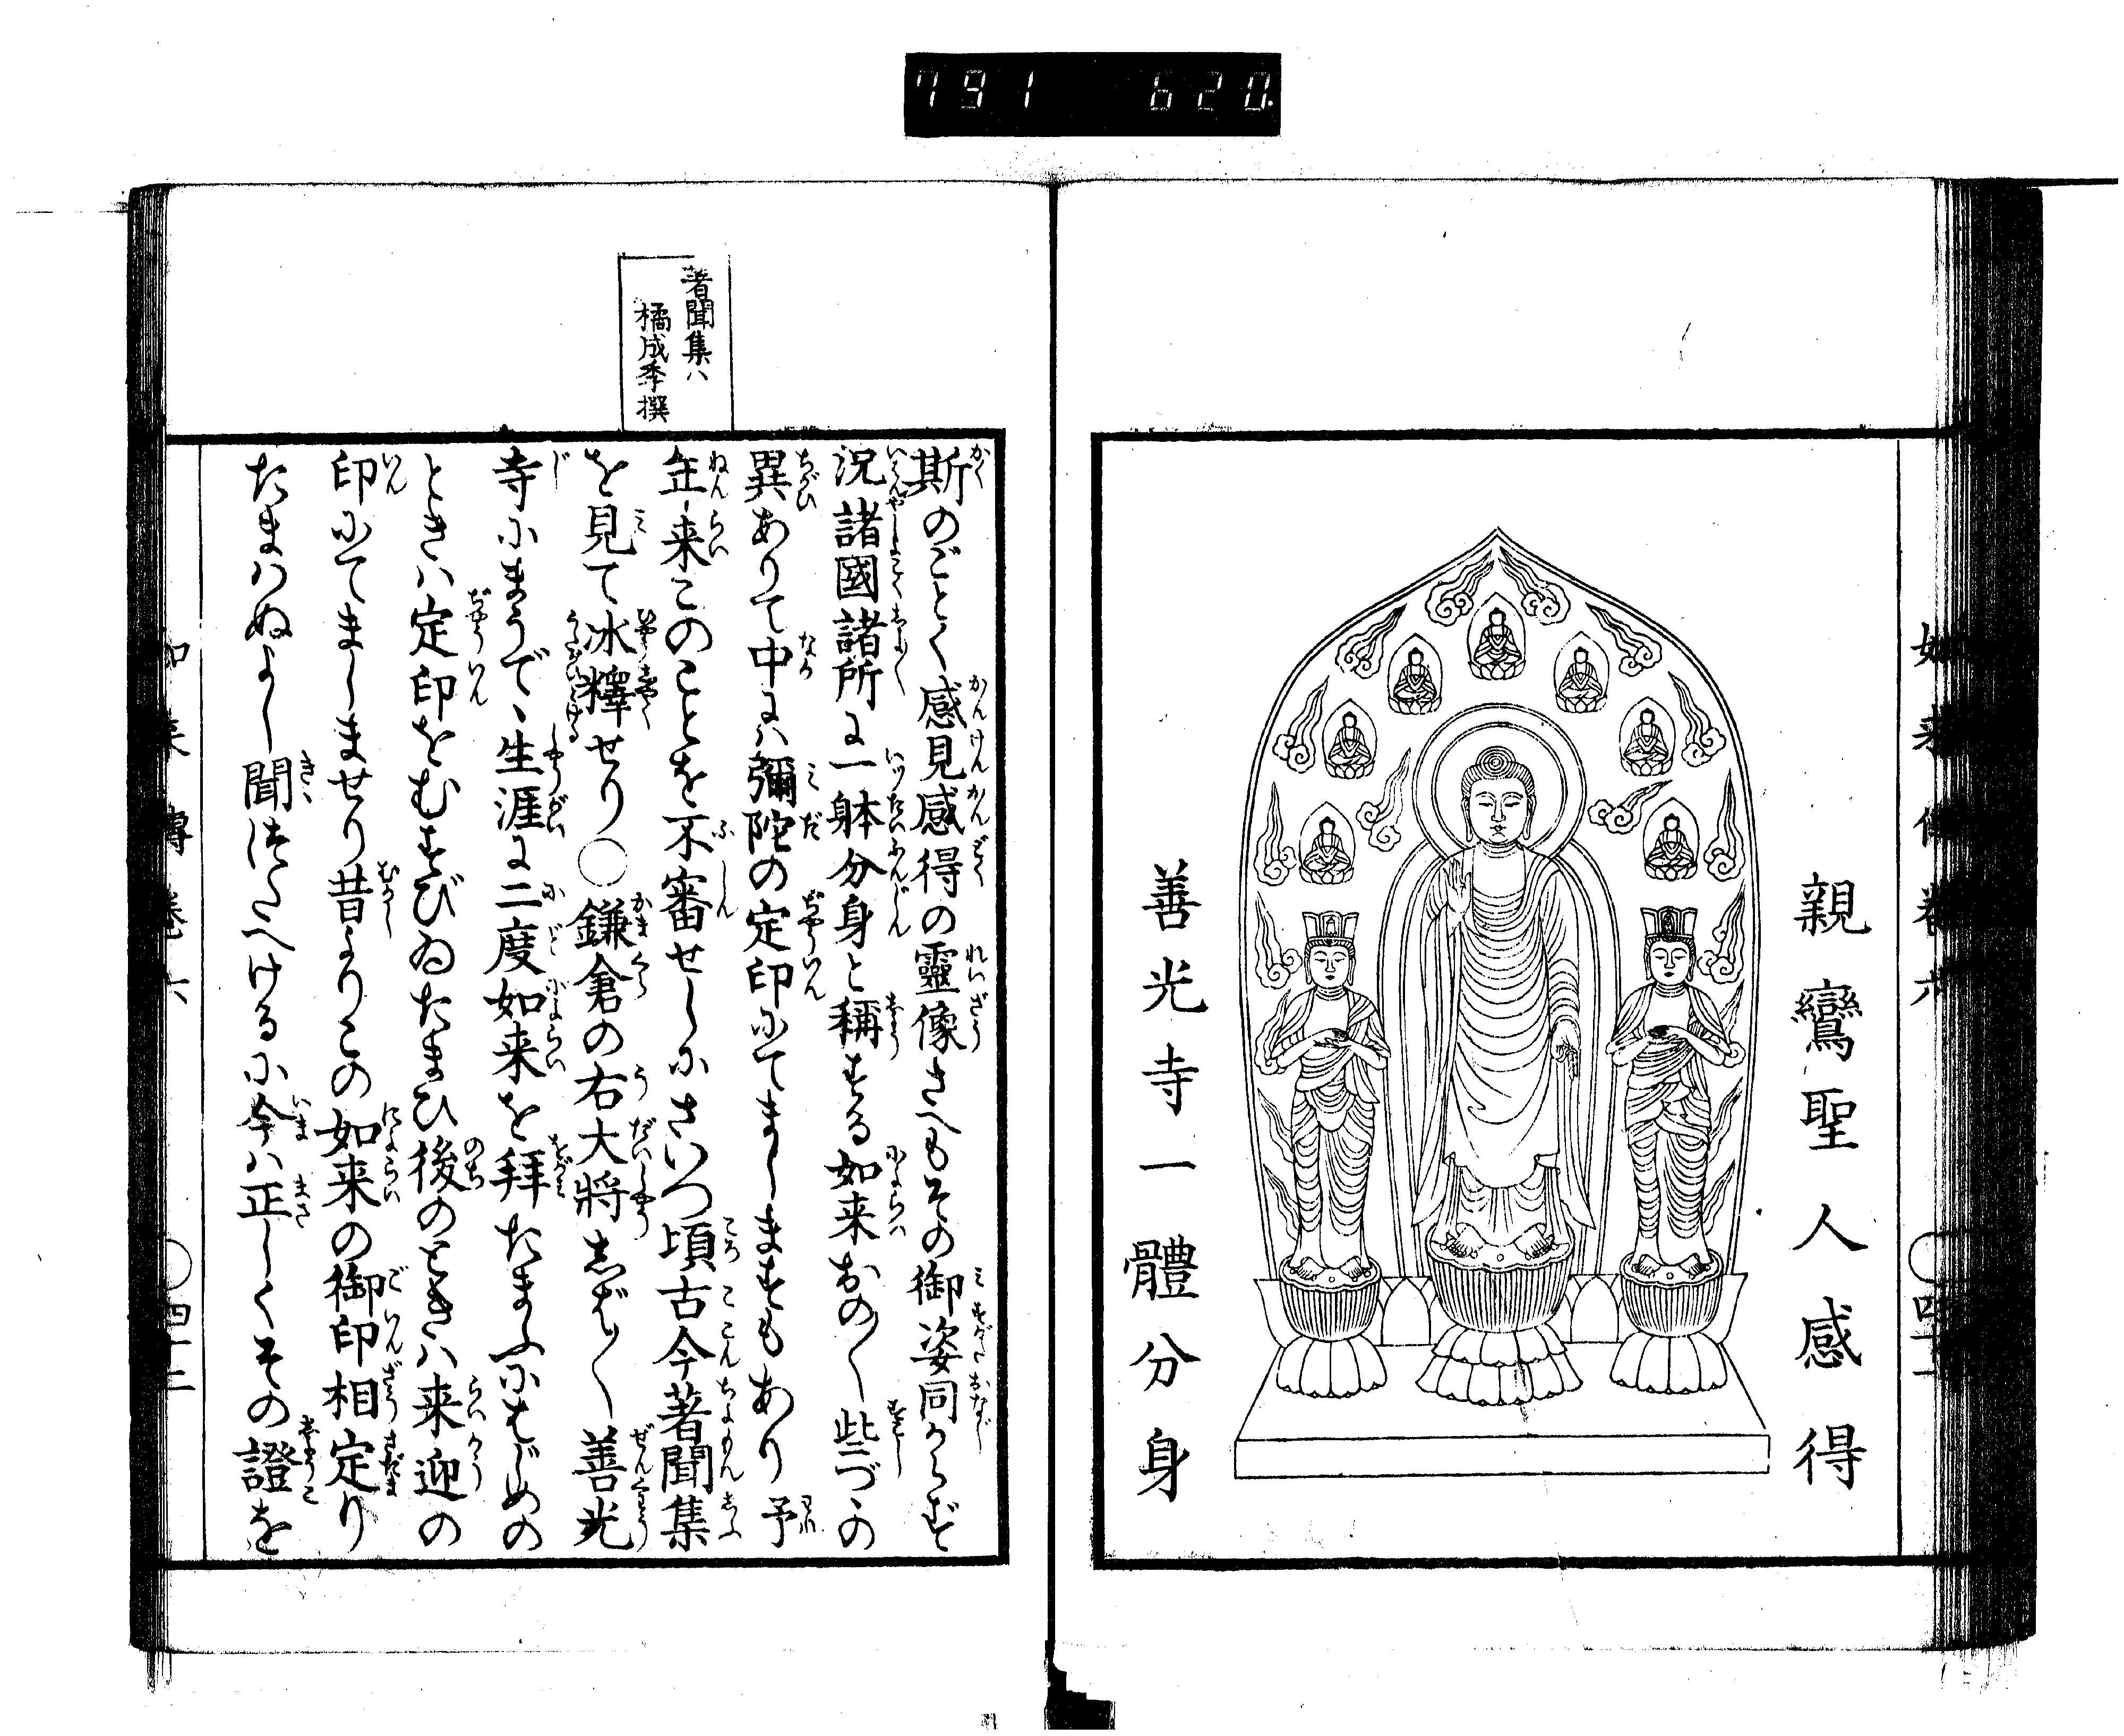 791 620
如来傳卷六
親鸞聖人感得
善光寺一體分身
著聞集ハ
橘成季撰
斯のごとく感見感得の靈像さへもその御姿同からず
況諸國諸所に一躰分身と稱する如来おの〳〵些づゝの
異ありて中にハ彌陀の定印にてましますもあり予
年来このことを不審せしにさいつ頃古今著聞集
を見て冰釋せり○鎌倉の右大將しば〳〵善光
寺にまうで、生涯に二度如来を拜たまふにはじめの
ときハ定印をむすびゐたまひ後のときハ来迎の
印にてましませり昔よりこの如来の御印相定り
たまはぬよし聞つたへけるに今ハ正しくその證を
如来傳卷六
○四十二